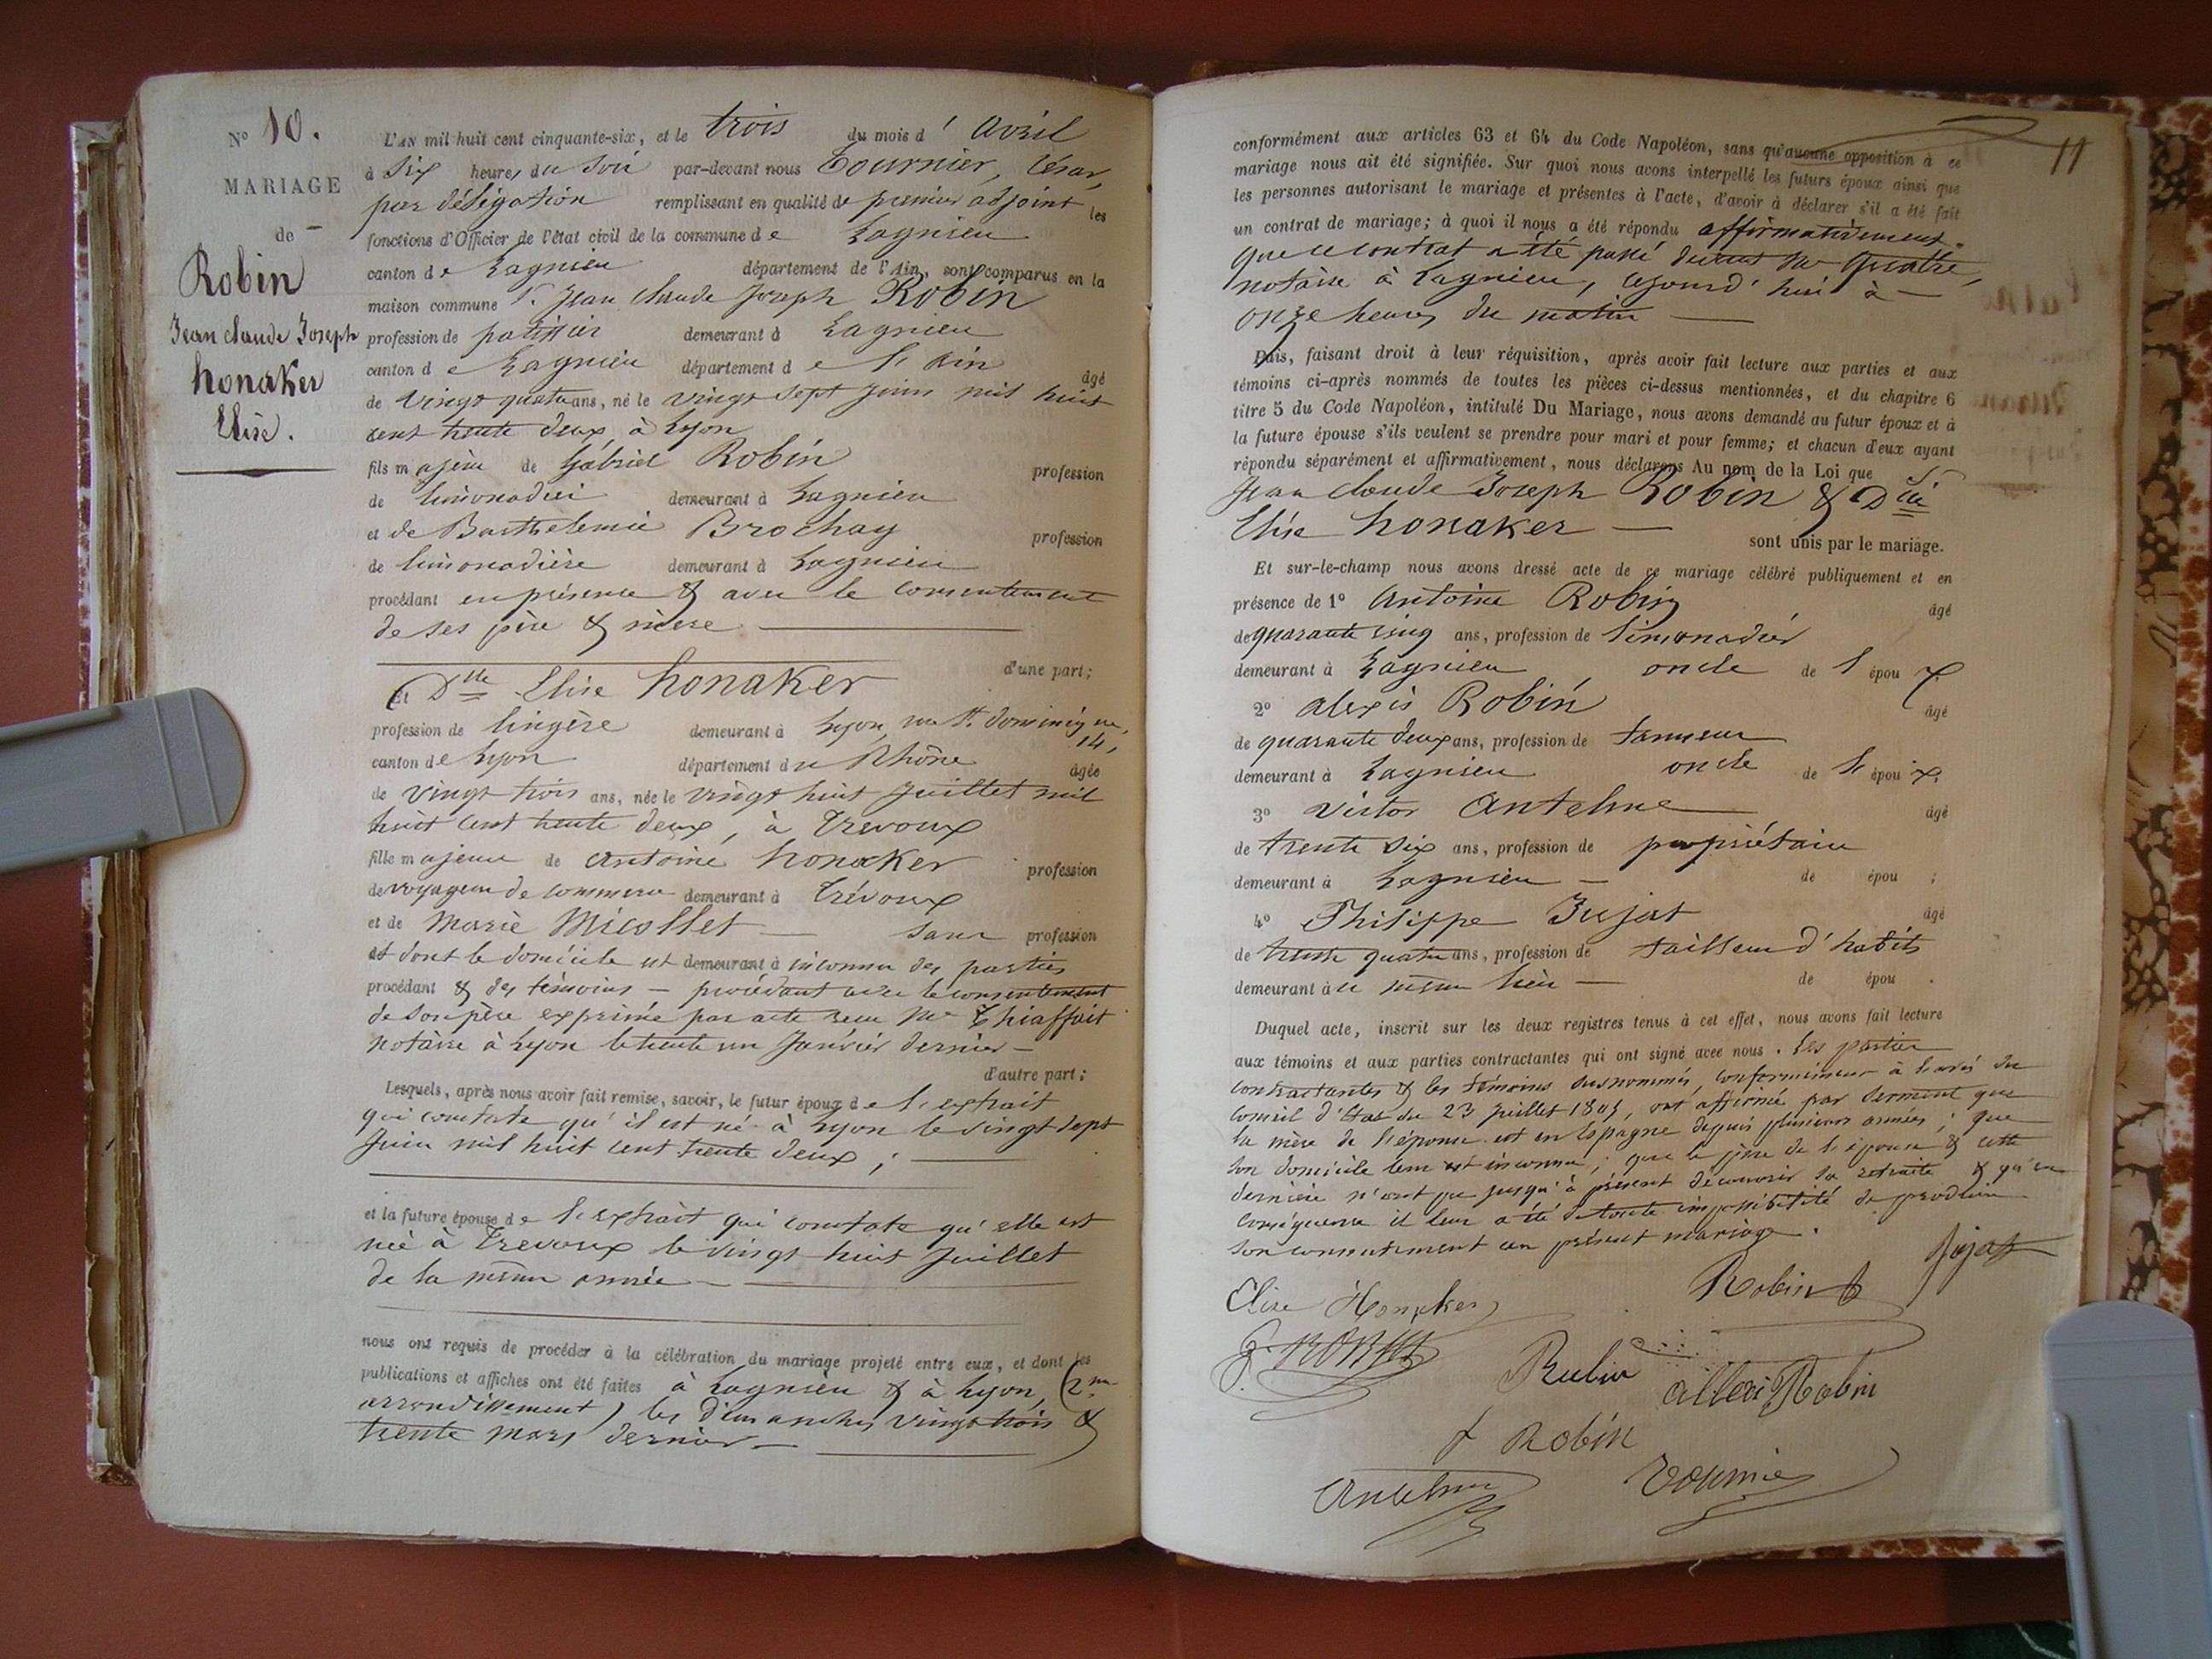 N° 10.
MARIAGE
de
Robin
Jean Claude Joseph
honaker
Elise.
L'AN mil huit cent cinquante-six, et le trois du mois d' avril
à six heures du soir par-devant nous Tournier, César,
par délégation remplissant en qualité de premier adjoint les
fonctions d'Officier de l'état civil de la commune de Lagnieu
canton de Lagnieu département de l'Ain, sont comparus en la
maison commune Sr. Jean Claude Joseph Robin
profession de patissier demeurant à Lagnieu
canton de Lagnieu département de l'ain âgé
de vingt quatre ans, né le vingt sept juin mil huit
cent trente deux à Lyon
fils majeur de Gabriel Robin profession
de limonadier demeurant à Lagnieu
et de Barthelemie Brochay profession
de limonadière demeurant à Lagnieu
procédant en présence & avec le consentement
de ses père & mère
d'une part;
Et Dlle Elise honaker
profession de lingère demeurant à Lyon, rue St. dominique,
14,
canton de Lyon département du Rhône âgée
de vingt trois ans, née le vingt huit juillet mil
huit cent trente deux, à Trevoux
fille majeure de antoine honaker profession
de voyageur de commerce demeurant à Trévoux
et de Marie Micollet sans profession
et dont le domicile est demeurant à inconnu des parties
procédant & des témoins – procédant avec le consentement
de son père exprimé par acte reçu Me Thiaffait
notaire à Lyon le trente un Janvier dernier –
d'autre part;
Lesquels, après nous avoir fait remise, savoir, le futur époux de l'extrait
qui constate qu'il est né à Lyon le vingt sept
Juin mil huit cent trente deux ;
et la future épouse de l'extrait qui constate qu'elle est
née à Trevoux le vingt huit Juillet
de la même année
nous ont requis de procéder à la célébration du mariage projeté entre eux, et dont les
publications et affiches ont été faites à Lagnieu & à Lyon, (2me
arrondissement) les dimanches vingt trois &
trente mars dernier
11
conformément aux articles 63 et 64 du Code Napoléon, sans qu'aucune opposition à ce
mariage nous ait été signifiée. Sur quoi nous avons interpellé les futurs époux ainsi que
les personnes autorisant le mariage et présentes à l'acte, d'avoir à déclarer s'il a été fait
un contrat de mariage; à quoi il nous a été répondu affirmativement.
que le contrat a été passé devant Me Quatre,
notaire à Lagnieu, cejourd'hui à
onze heures du matin
Puis, faisant droit à leur réquisition, après avoir fait lecture aux parties et aux
témoins ci-après nommés de toutes les pièces ci-dessus mentionnées, et du chapitre 6
titre 5 du Code Napoléon, intitulé Du Mariage, nous avons demandé au futur époux et à
la future épouse s'ils veulent se prendre pour mari et pour femme; et chacun d'eux ayant
répondu séparément et affirmativement, nous déclarons Au nom de la Loi que Sr
Jean Claude Joseph Robin & Dlle
Elise honaker
sont unis par le mariage.
Et sur-le-champ nous avons dressé acte de ce mariage célébré publiquement et en
présence de 1° Antoine Robin âgé
de quarante cinq ans, profession de limonadier
demeurant à Lagnieu oncle de l'époux
2° alexis Robin âgé
de quarante deux ans, profession de tanneur
demeurant à Lagnieu oncle de l'époux.
3° Victor Antelme âgé
de trente six ans, profession de propriétaire
demeurant à Lagnieu – de épou ;
4° Philippe Jujat âgé
de trente quatre ans, profession de tailleur d'habits
demeurant à ce même lieu – de épou .
Duquel acte, inscrit sur les deux registres tenus à cet effet, nous avons fait lecture
aux témoins et aux parties contractantes qui ont signé avec nous. Les parties
contractantes & les témoins susnommés, conformément à l'avis du
Conseil d'Etat du 23 juillet 1805, ont affirmé par serment que
la mère de l'épouse est en Espagne depuis plusieurs années ; que
son domicile leur est inconnu ; que le père de l'épouse & cette
dernière n'ont pu jusqu'à présent découvrir sa retraite & qu'en
conséquence il leur a été de toute impossibilité de produire
son consentement au présent mariage.
Jujat
Elise Honaker
Robin
Robin
allexi Robin
Robin
Antelme
Tournier